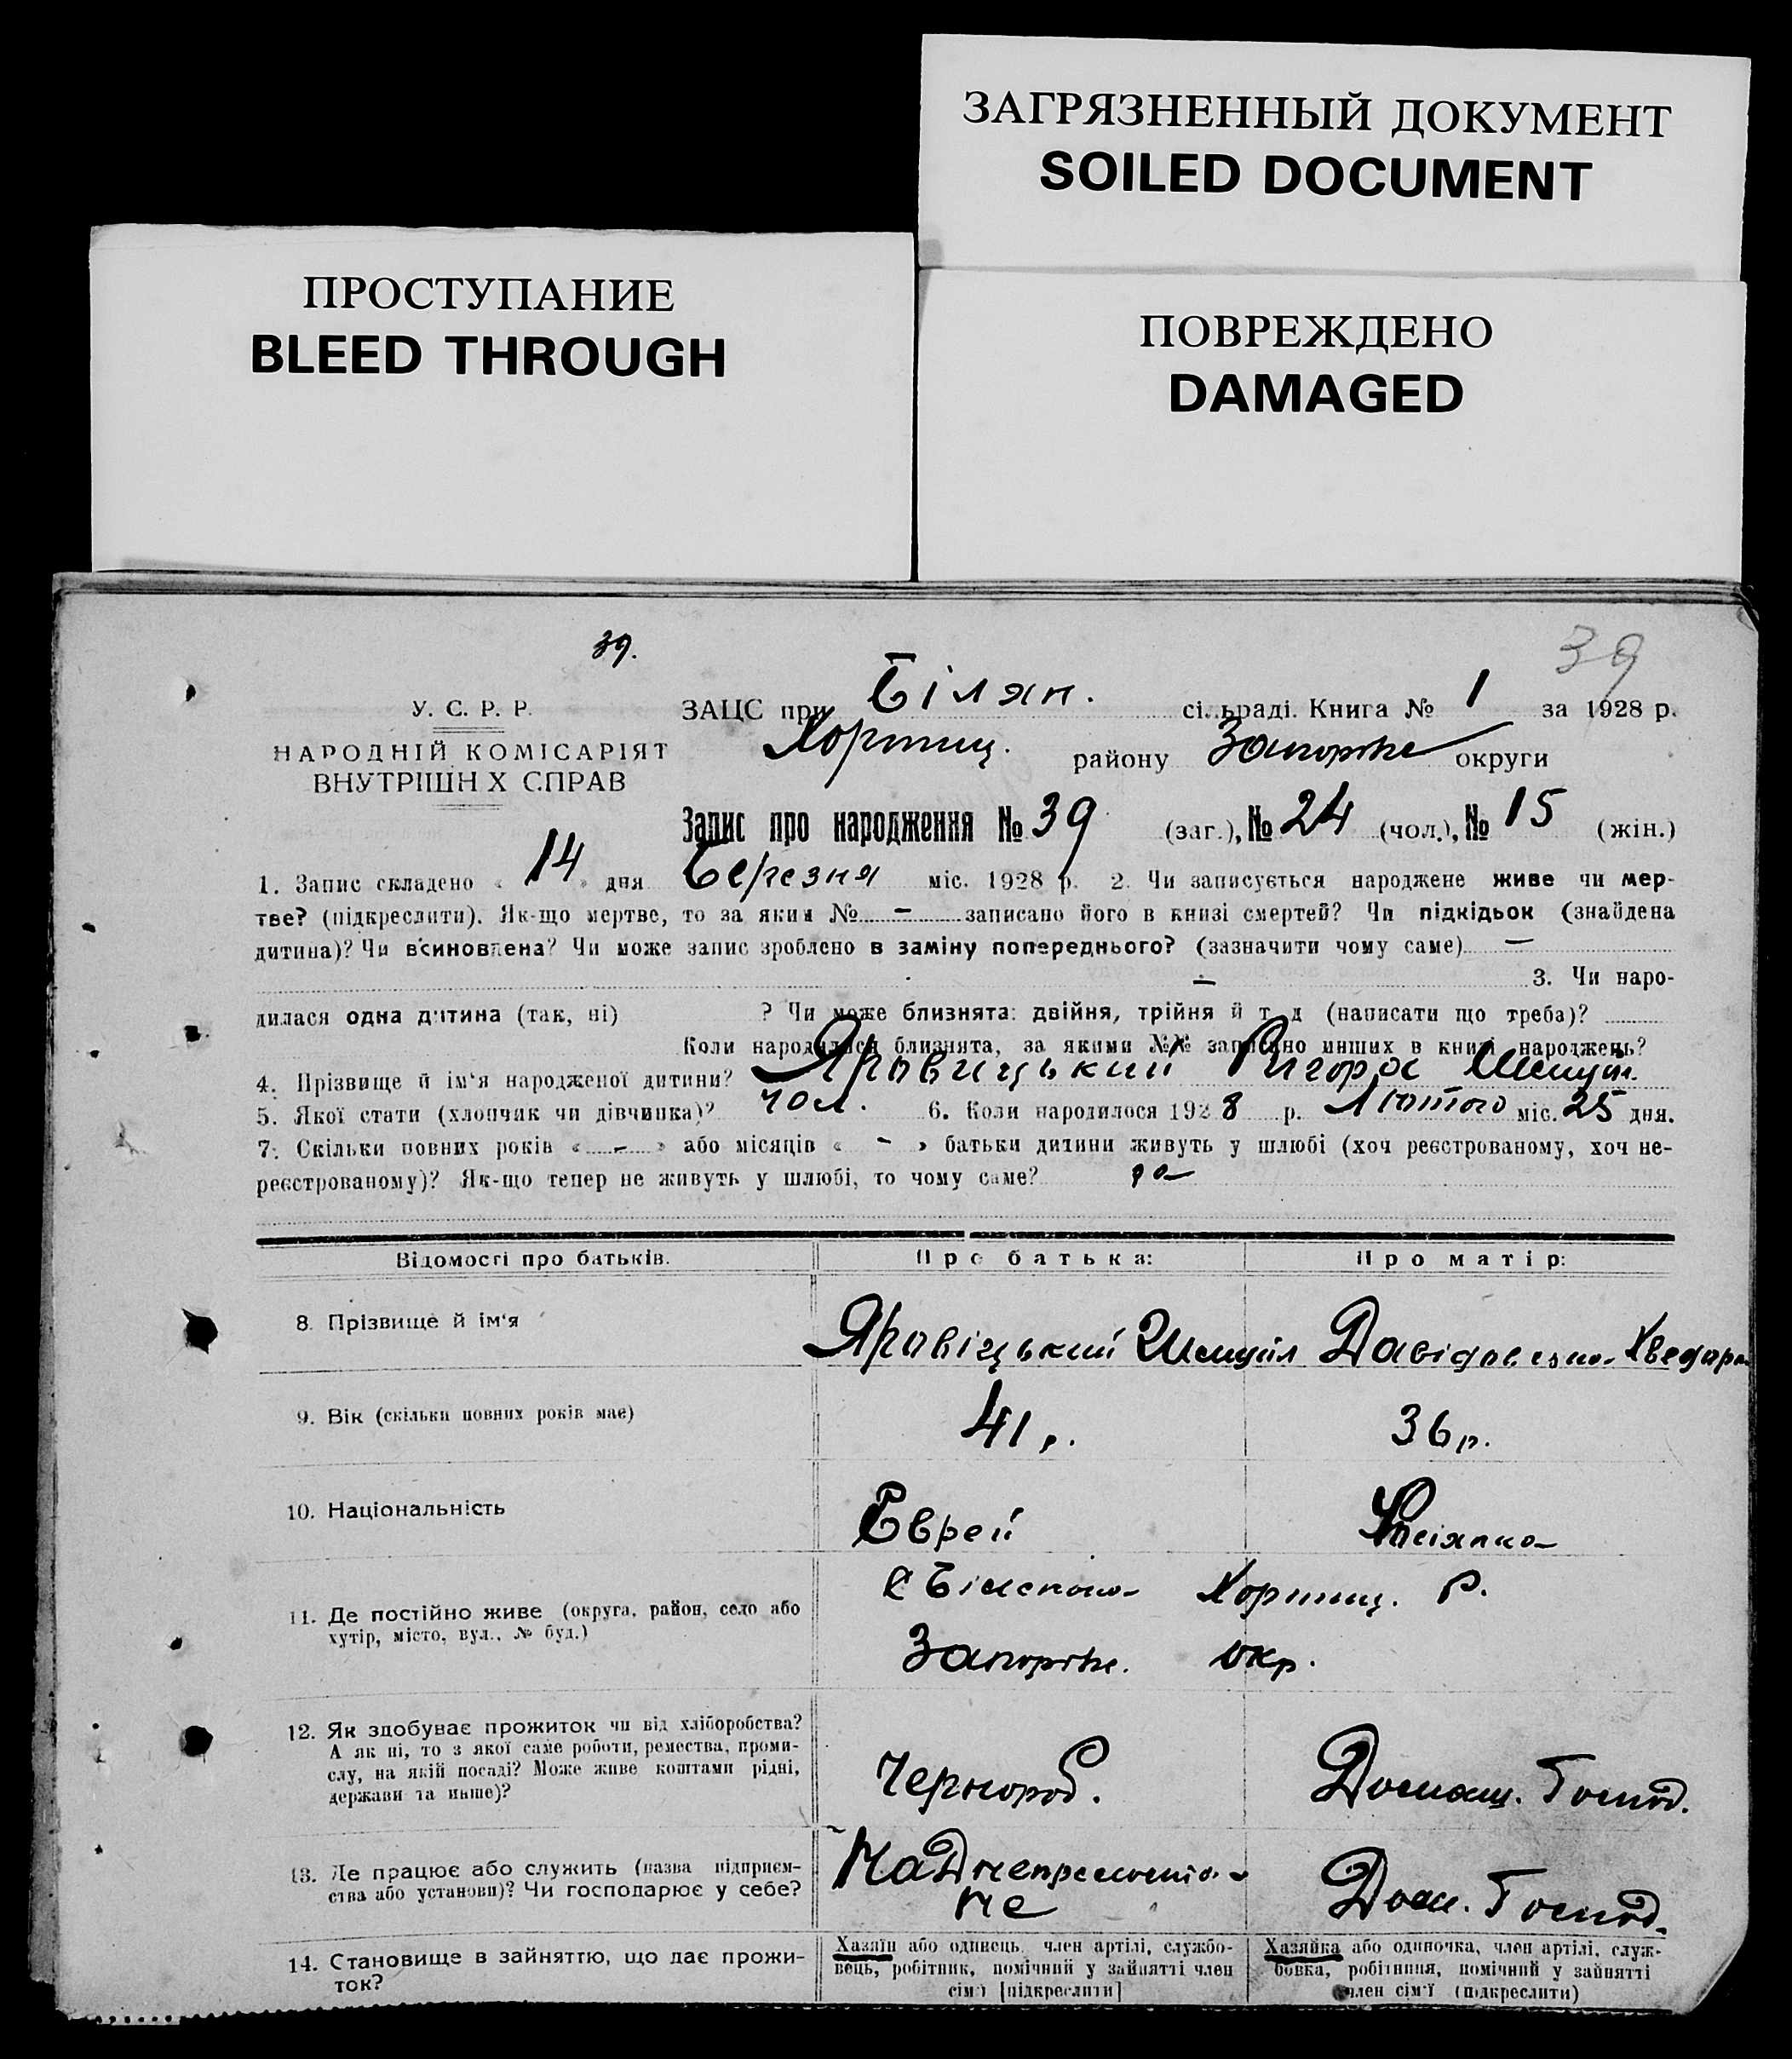 ЗАГРЯЗНЕННЫЙ ДОКУМЕНТ
SOILED DOCUMENT
ПРОСТУПАНИЕ
BLEED THROUGH
ПОВРЕЖДЕНО
DAMAGED
39.
39
У. С. Р. Р.
НАРОДНІЙ КОМІСАРІЯТ
ВНУТРІШН Х СПРАВ
ЗАЦС при Білян. сі..ьраді. Книга № 1 за 1928 р.
Хортиц. району Запоріже округи
Запис про народження № 39 (заг.), № 24 (чол.), № 15 (жін.)
1. Запис складено « 14 » дня Березня міс. 1928 р. 2. Чи записується народжене живе чи мер-
тве? (підкреслити). Як-що мертве, то за яким № — записано його в книзі смертей? Чи підкідьок (знайдена
дитина)? Чи всиновлена? Чи може запис зроблено в заміну попереднього? (зазначити чому саме) —
— 3. Чи наро-
дилася одна дитина (так, ні) ? Чи може близнята: двійня, трійня й т. д (написати що треба)?
Коли народилися близнята, за якими №№ записано инших в книзі народжень?
4. Прізвище й ім'я народженої дитини? Яровицький Шмуїл.
5. Якої стати (хлопчик чи дівчинка)? чол. 6. Коли народилося 1928 р. Лютого міс. 25 дня.
7. Скільки повних років « — » або місяців « — » батьки дитини живуть у шлюбі (хоч реєстрованому, хоч не-
реєстрованому)? Як-що тепер не живуть у шлюбі, то чому саме?
Відомості про батьків.
Про батька:
Про матір:
8. Прізвище й ім'я
Яровіцький Шмуїл
Давідовезна
9. Вік (скільки повних років має)
41 р.
36 р.
10. Національність
Еврей
11. Де постійно живе (округа, район, село або
хутір, місто, вул., № буд.)
Хортиц. Р.
Запоріже. окр.
12. Як здобуває прожиток чи від хліборобства?
А як ні, то з якої саме роботи, ремества, проми-
слу, на якій посаді? Може живе коштами рідні,
держави та инше)?
Чернороб.
Домаш. Господ.
13. Де працює або служить (назва підприєм-
ства або установи)? Чи господарює у себе?
Дом. Господ.
14. Становище в зайняттю, що дає прожи-
ток?
Хазяїн або одинець, член артілі, службо-
вець, робітник, помічний у зайнятті член
сім'ї [підкреслити]
Хазяйка або одиночка, член артілі, служ-
бовка, робітниця, помічний у зайнятті
член сім'ї (підкреслити)